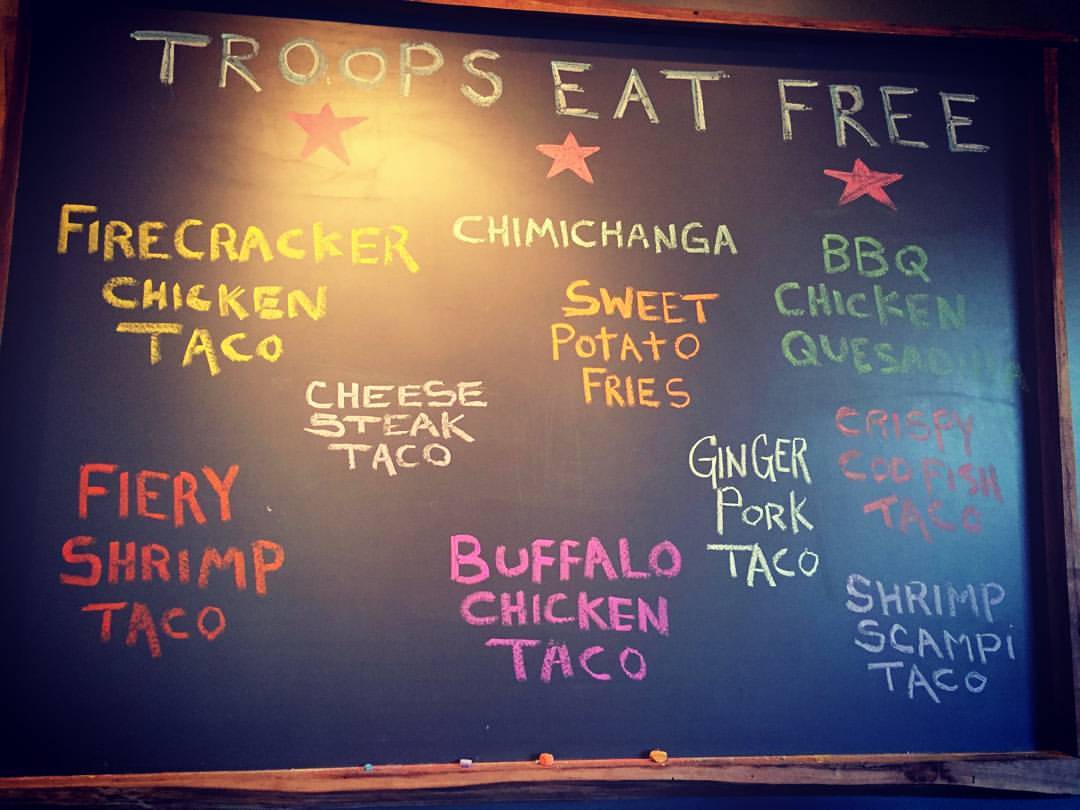 TROOPS EAT FREE
FIRECRACKER
CHICKEN
TACO
CHIMICHANGA
SWEET
POTATO
FRIES
BBQ
CHICKEN
QUESADILLA
CHEESE
STEAK
TACO
CRISPY
COD FISH
TACO
GINGER
PORK
TACO
FIERY
SHRIMP
TACO
BUFFALO
CHICKEN
TACO
SHRIMP
SCAMPI
TACO